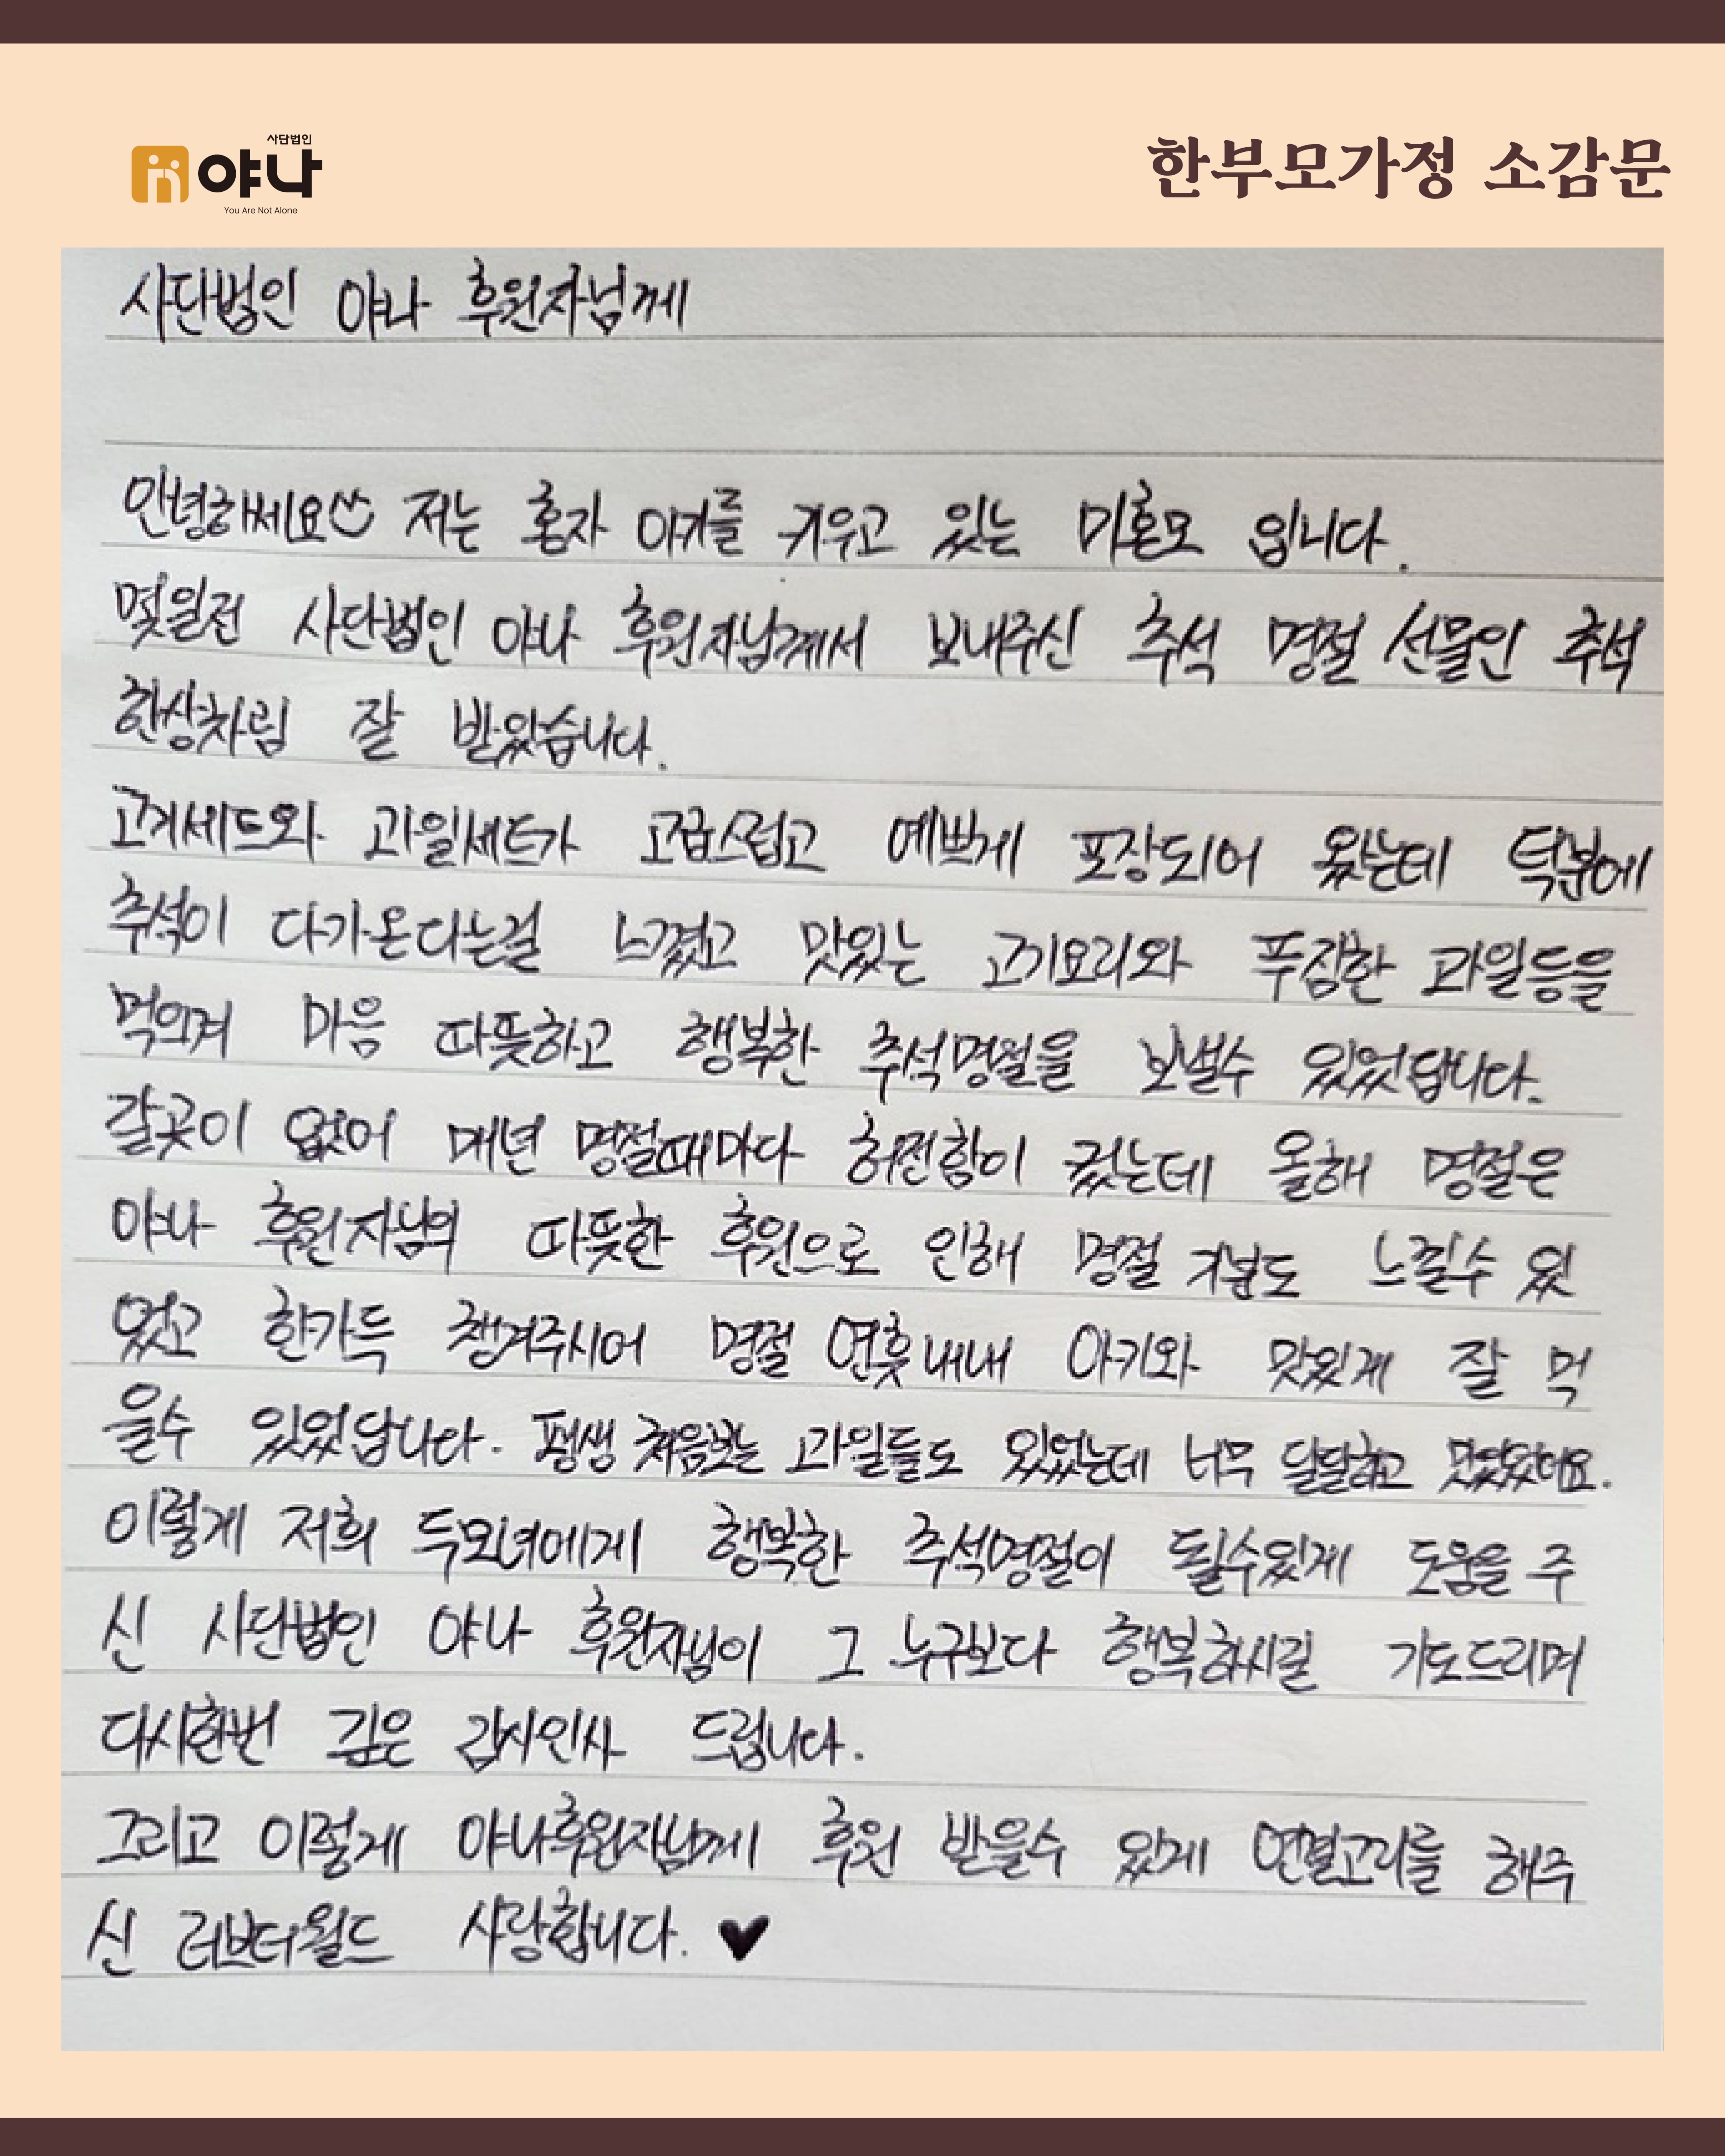 사단법인
야나
You Are Not Alone
한부모가정 소감문
사단법인 야나 후원자님께
안녕하세요 저는 혼자 아기를 키우고 있는 미혼모 입니다.
몇일전 사단법인 야나 후원자님께서 보내주신 추석 명절 선물인 추석
한상차림 잘 받았습니다.
고기세트와 과일세트가 고급스럽고 예쁘게 포장되어 왔는데 덕분에
추석이 다가온다는걸 느꼈고 맛있는 고기요리와 푸짐한 과일등을
먹으며 마음 따뜻하고 행복한 추석명절을 보낼수 있었답니다.
갈곳이 없어 매년 명절때마다 허전함이 컸는데 올해 명절은
야나 후원자님의 따뜻한 후원으로 인해 명절 기분도 느낄수 있
었고 한가득 챙겨주시어 명절 연휴내내 아기와 맛있게 잘 먹
을수 있었답니다. 평생 처음보는 과일들도 있었는데 너무 달달하고 맛있었어요.
이렇게 저희 두모녀에게 행복한 추석명절이 될수있게 도움을 주
신 사단법인 야나 후원자님이 그 누구보다 행복하시길 기도드리며
다시한번 깊은 감사인사 드립니다.
그리고 이렇게 야나후원자님께 후원 받을수 있게 연결고리를 해주
신 러브더월드 사랑합니다. ♥